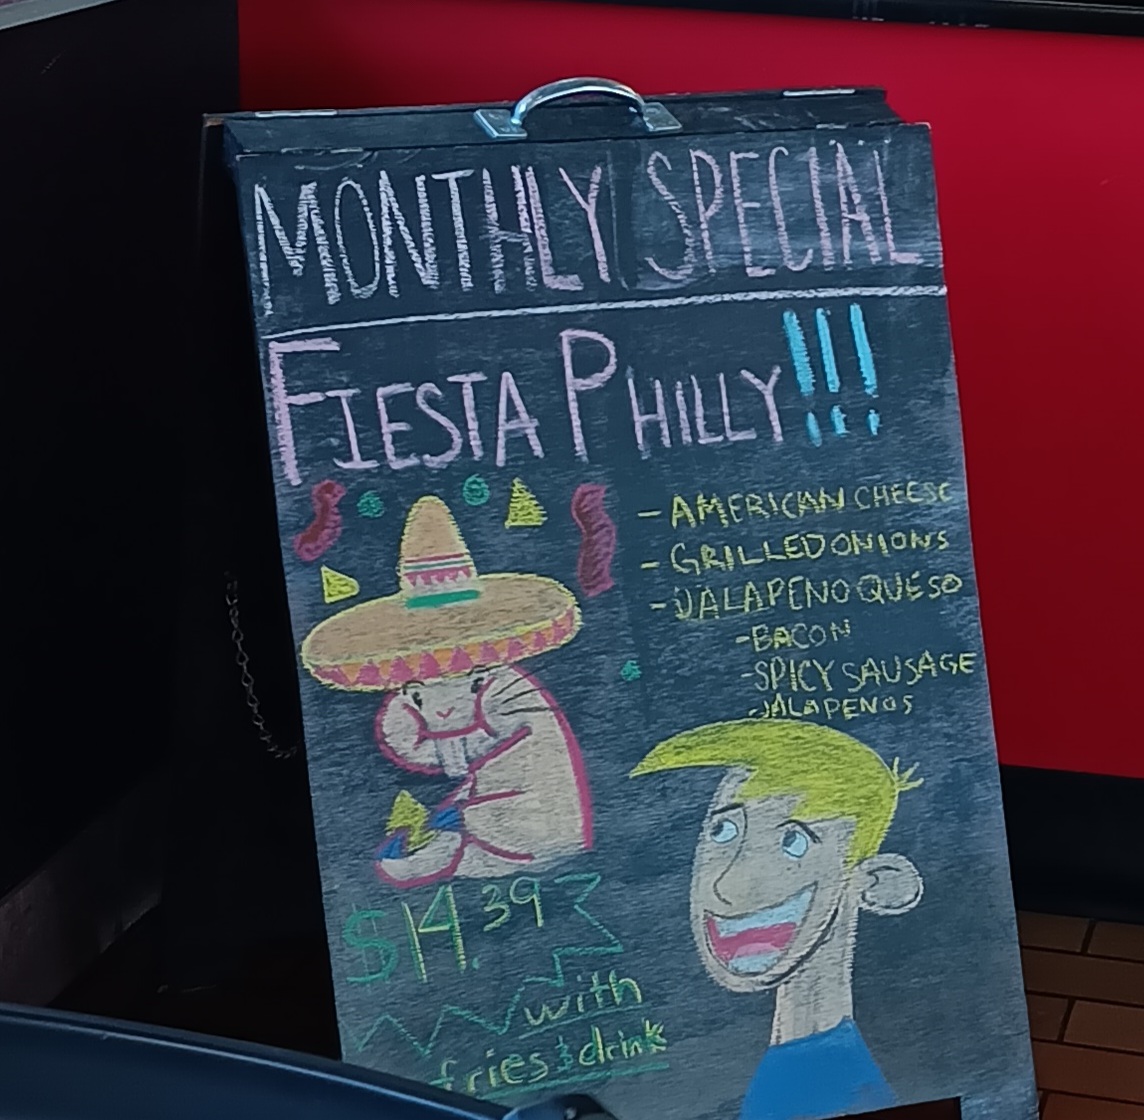 MONTHLY SPECIAL
FIESTA PHILLY!!!
- AMERICAN CHEESE
- GRILLED ONIONS
- JALAPENO QUESO
- BACON
- SPICY SAUSAGE
- JALAPENOS
$14.39
with
fries & drink